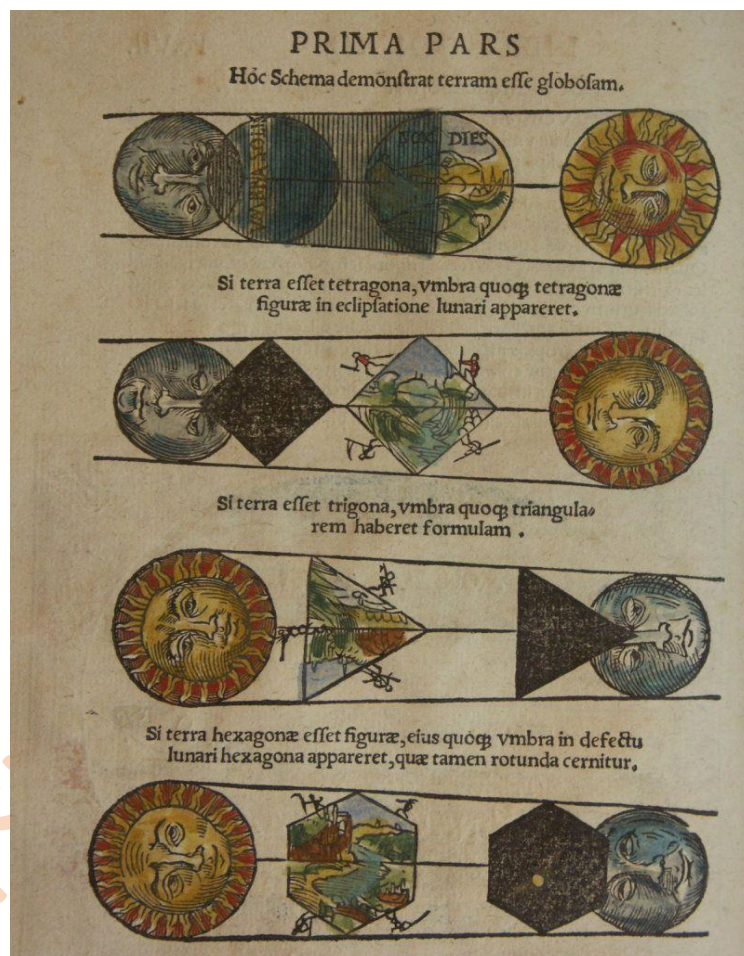 PRIMA PARS
Hôc Schema demõſtrat terram eſſe globoſam.
VMBRA SOLIS
NOX DIES
Si terra eſſet tetragona, vmbra quoqꝫ tetragonæ
figuræ in eclipſatione lunari appareret.
Si terra eſſet trigona, vmbra quoqꝫ triangula⸗
rem haberet formulam .
Si terra hexagonæ eſſet figuræ, eius quoqꝫ vmbra in defectu
lunari hexagona appareret, quæ tamen rotunda cernitur.